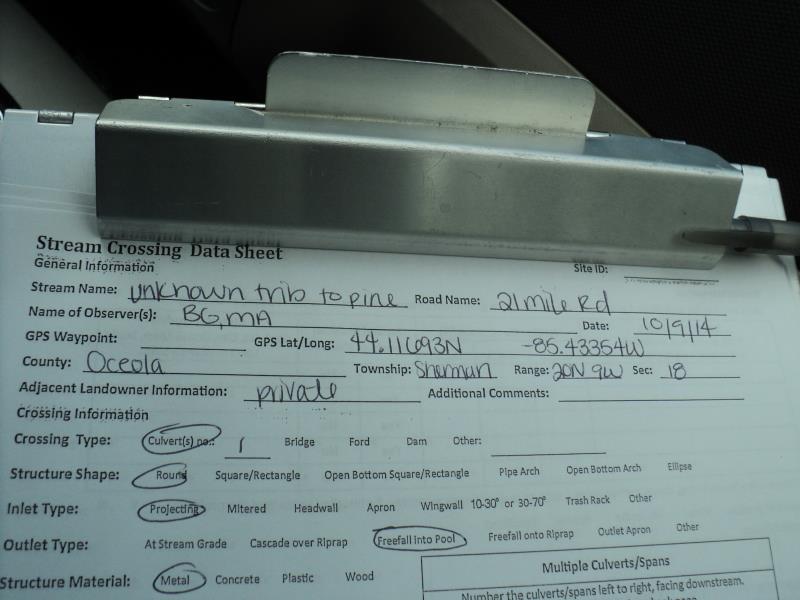 Stream Crossing Data Sheet
General Information Site ID:
Stream Name: unknown trib to pine Road Name: 21 mile Rd
Name of Observer(s): BG, MA Date: 10/9/14
GPS Waypoint: GPS Lat/Long: 44.11693N -85.43354W
County: Oceola Township: Sherman Range: 20N 9W Sec: 18
Adjacent Landowner Information: private Additional Comments:
Crossing Information
Crossing Type: Culvert(s) no.: 1 Bridge Ford Dam Other:
Structure Shape: Round Square/Rectangle Open Bottom Square/Rectangle Pipe Arch Open Bottom Arch Ellipse
Inlet Type: Projecting Mitered Headwall Apron Wingwall 10-30° or 30-70° Trash Rack Other
Outlet Type: At Stream Grade Cascade over Riprap Freefall into Pool Freefall onto Riprap Outlet Apron Other
Structure Material: Metal Concrete Plastic Wood
Multiple Culverts/Spans
Number the culverts/spans left to right, facing downstream.